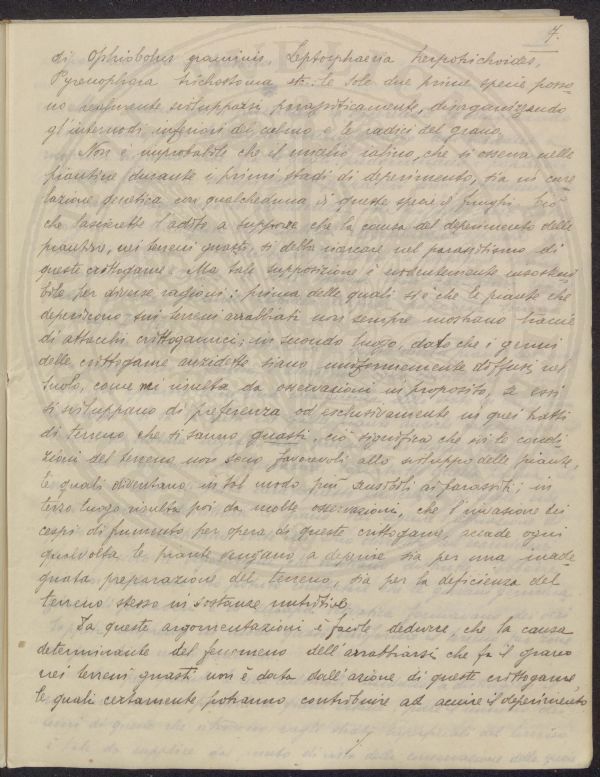 7.
di Ophiobolus graminis, Leptosphaeria herpotrichoides,
Pyrenophora trichostoma etc. le sole due prime specie posso-
no realmente svilupparsi parassiticamente, disorganizzando
gl'internodi inferiori del culmo e le radici del grano.
Non è improbabile che il micelio ialino, che si osserva nelle
piantine durante i primi stadi di deperimento, sia in cor-
relazione genetica con qualcheduna di queste specie di funghi. Ciò
che lascerebbe l'adito a supporre che la causa del deperimento delle
piantine, nei terreni guasti, si debba ricercare nel parassitismo di
queste crittogame. Ma tale supposizione è evidentemente insosteni-
bile per diverse ragioni: prima delle quali si è che le piante che
deperiscono sui terreni arrabbiati non sempre mostrano traccie
di attacchi crittogamici; in secondo luogo, dato che i germi
delle crittogame anzidette siano uniformemente diffusi nel
suolo, come mi risulta da osservazioni in proposito, se essi
si sviluppano di preferenza od esclusivamente in quei tratti
di terreno che si sanno guasti, ciò significa che ivi le condi-
zioni del terreno non sono favorevoli allo sviluppo delle piante,
le quali diventano in tal modo più sensibili ai parassiti; in
terzo luogo risulta poi da molte osservazioni, che l'invasione dei
cespi di frumento per opera di queste crittogame, accade ogni
qualvolta le piante vengano a deperire sia per una inade-
guata preparazione del terreno, sia per la deficienza del
terreno stesso in sostanze nutritive.
Da queste argomentazioni è facile dedurre, che la causa
determinante del fenomeno dell'arrabbiarsi che fa il grano
nei terreni guasti non è data dall'azione di queste crittogame,
le quali certamente potranno contribuire ad acuire il deperimento